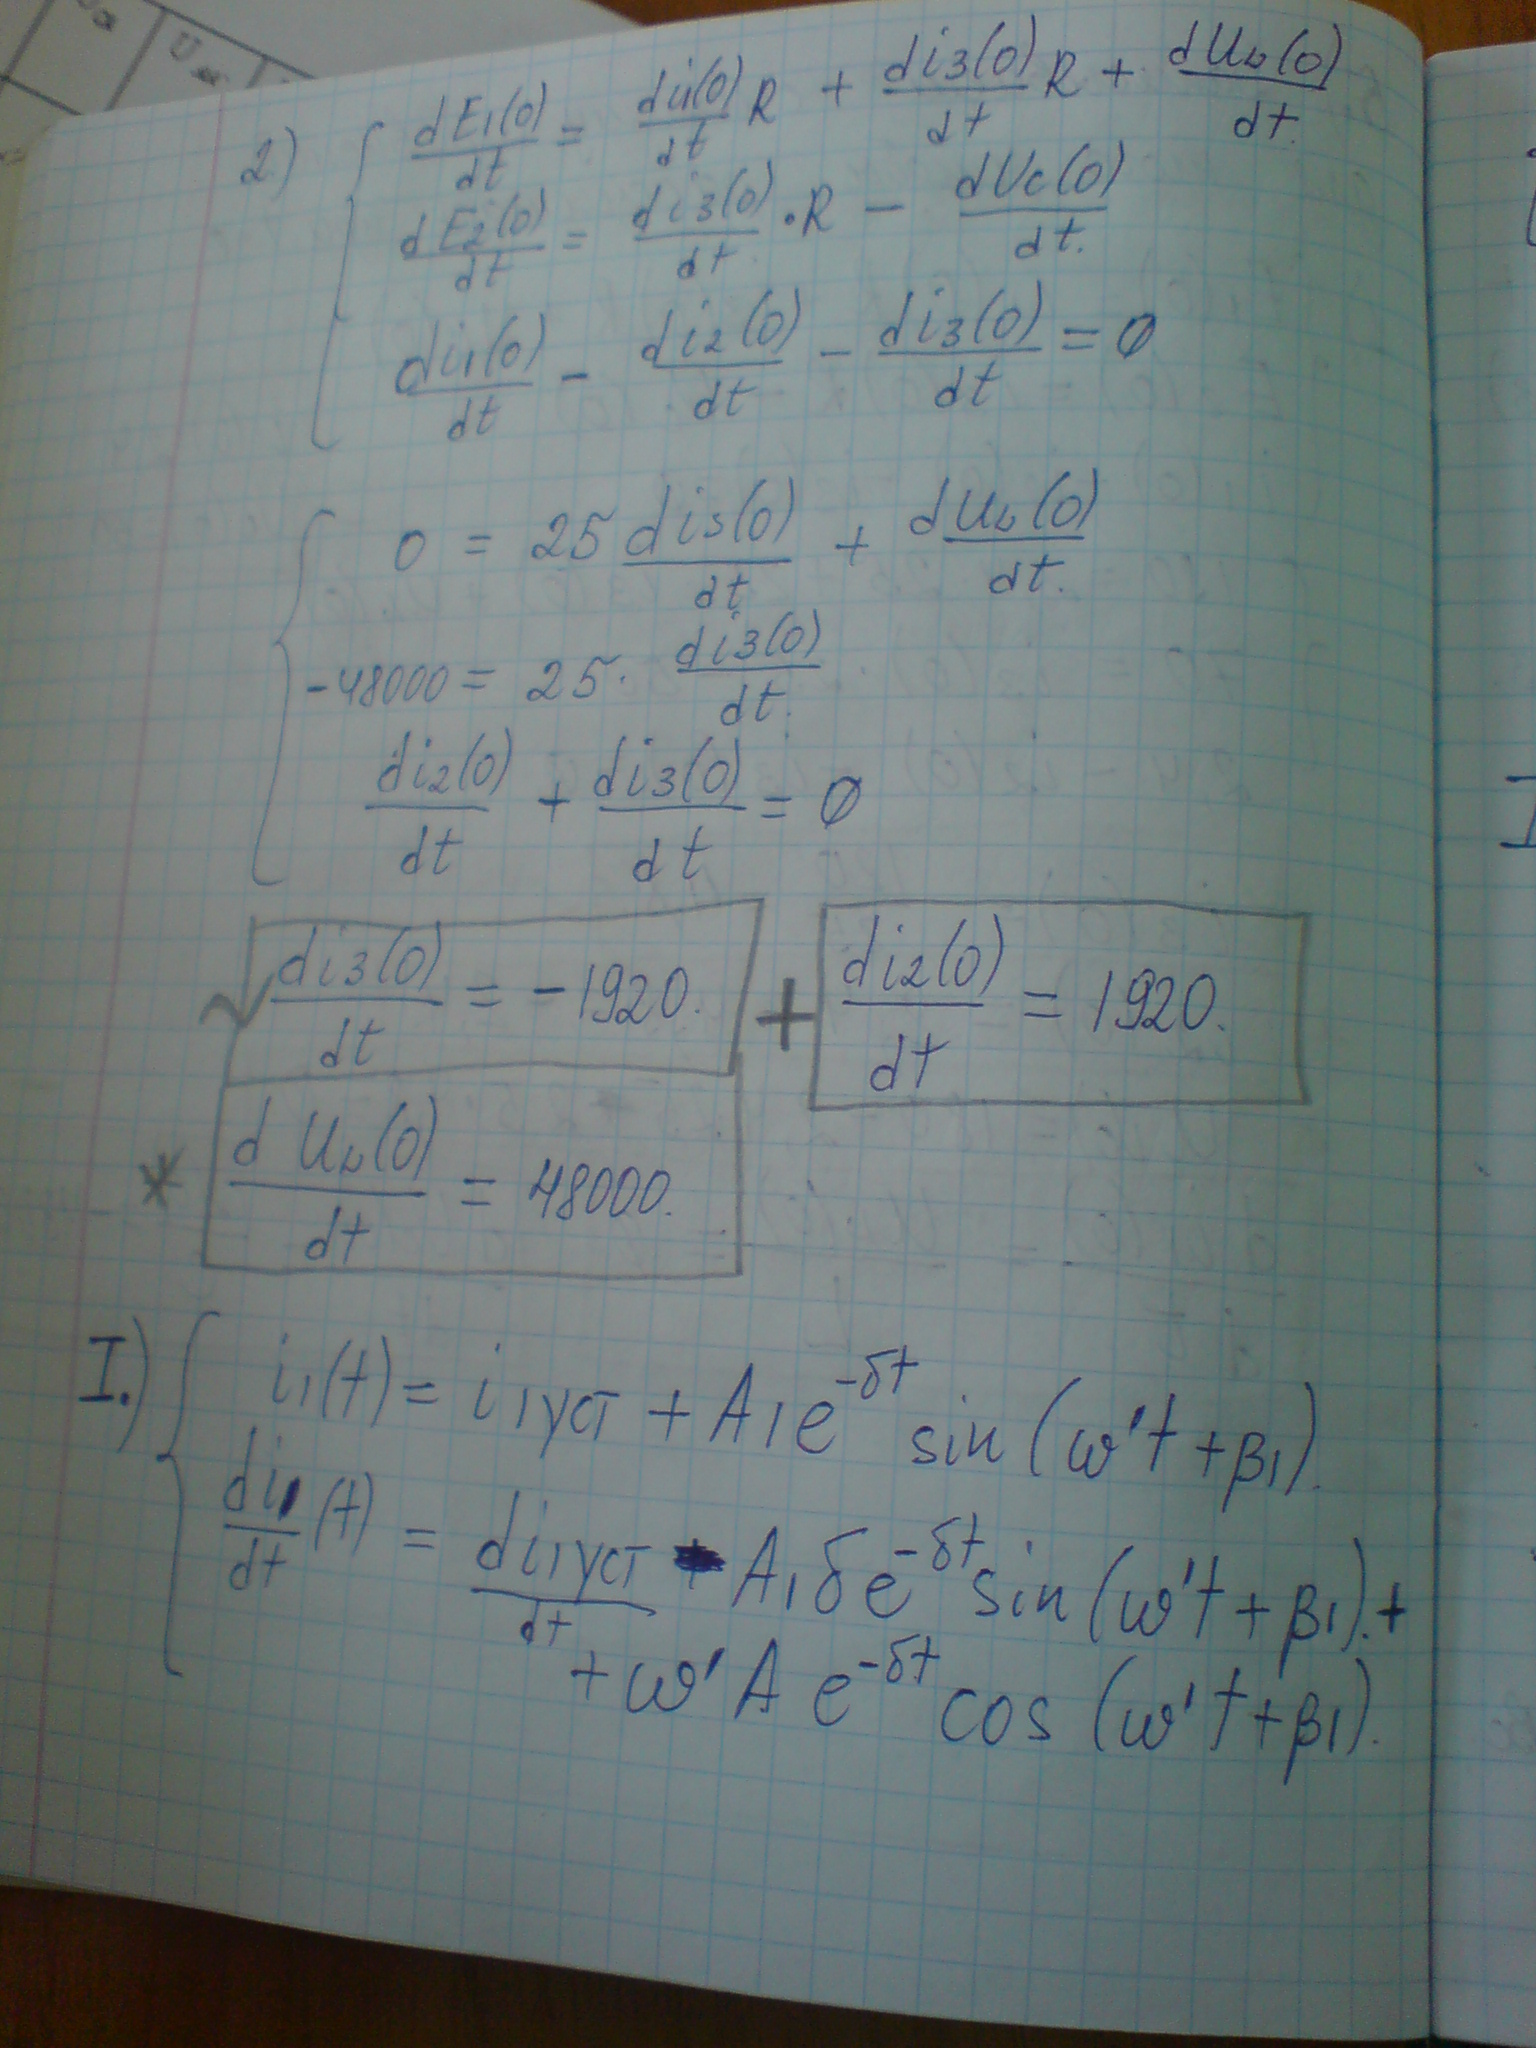 2) dE1(0)/dt = di1(0)/dt R + di3(0)/dt R + dUL(0)/dt.
dE2(0)/dt = di3(0)/dt · R − dUc(0)/dt.
di1(0)/dt − di2(0)/dt − di3(0)/dt = 0
0 = 25 di3(0)/dt + dUL(0)/dt.
-48000 = 25 · di3(0)/dt.
di2(0)/dt + di3(0)/dt = 0
√ di3(0)/dt = -1920. + di2(0)/dt = 1920.
* dUL(0)/dt = 48000.
I.) i1(t) = i1уст + A1e^-δt sin (ω't + β1).
di1/dt (t) = di1уст/dt - A1δe^-δt sin (ω't + β1). +
+ ω'A e^-δt cos (ω't + β1).